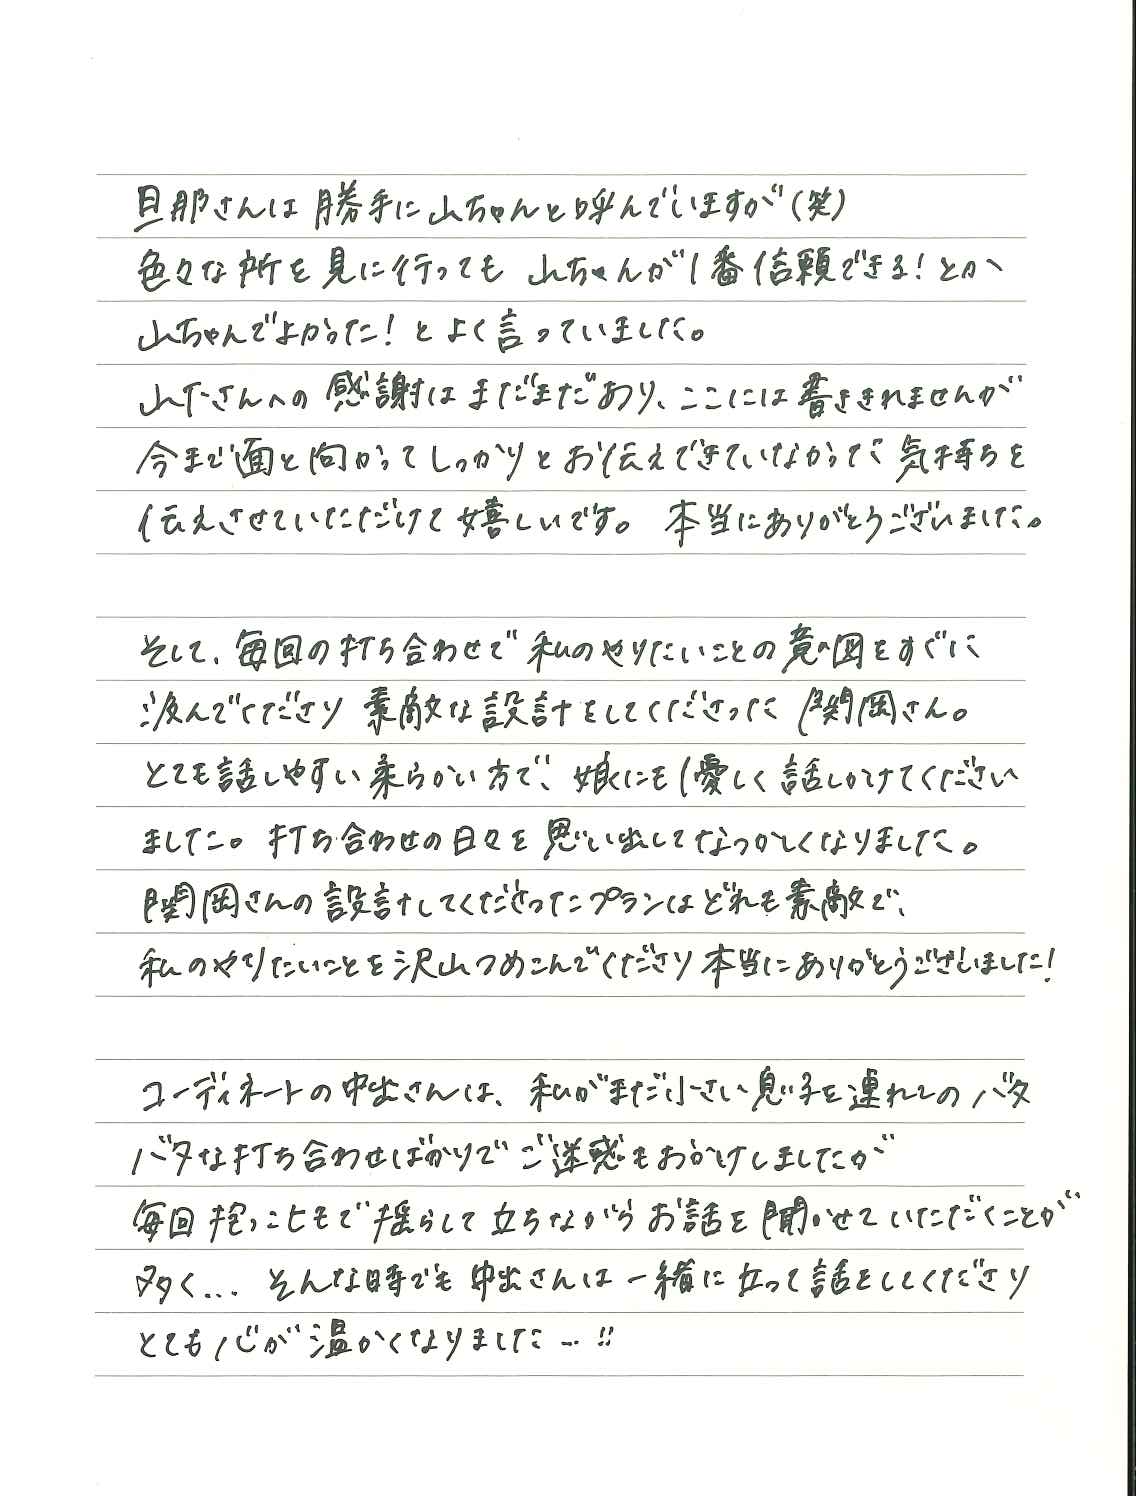 旦那さんは勝手に山ちゃんと呼んでいますが(笑)
色々な所を見に行っても 山ちゃんが1番信頼できる!とか
山ちゃんでよかった!とよく言っていました。
山下さんへの感謝はまだまだあり、ここには書ききれませんが
今まで面と向かってしっかりとお伝えできていなかったので気持ちを
伝えさせていただけて嬉しいです。 本当にありがとうございました。
そして、毎回の打ち合わせで私のやりたいことの意図をすぐに
汲んでくださり 素敵な設計をしてくださった 関岡さん。
とても話しやすい柔らかい方で、娘にも優しく話しかけてください
ました。打ち合わせの日々を思い出してなつかしくなりました。
関岡さんの設計してくださったプランはどれも素敵で、
私のやりたいことを沢山つめこんでくださり本当にありがとうございました!
コーディネートの中出さんは、私がまだ小さい息子を連れてのバタ
バタな打ち合わせばかりでご迷惑もおかけしましたが
毎回抱っこひもで揺らして立ちながらお話を聞かせていただくことが
多く... そんな時でも中出さんは一緒に立って話をしてくださり
とても心が温かくなりました...!!